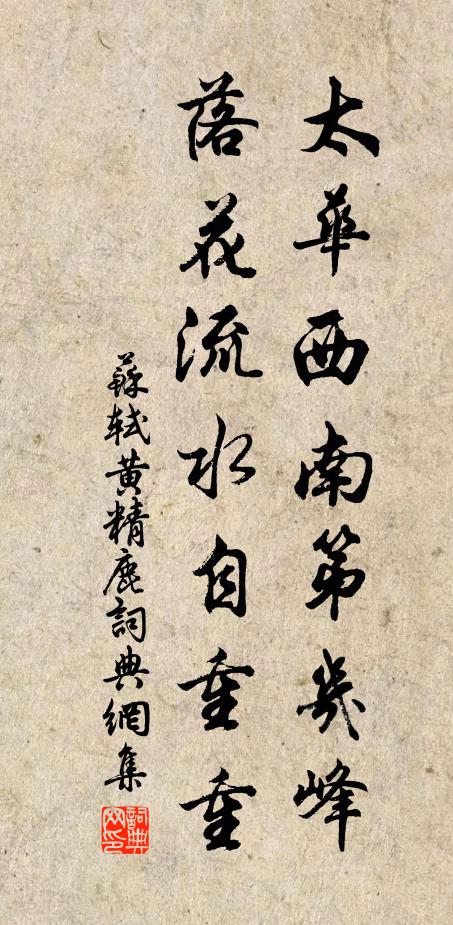 太華西南第幾峰
落花流水自重重
蘇軾黃精鹿詞典網集
詞典网印